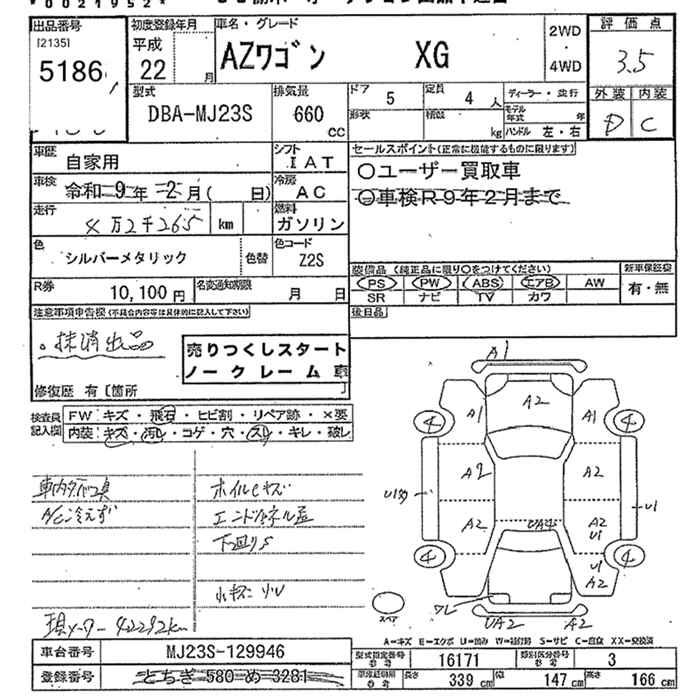 出品番号 初度登録年月 車名・グレード 2WD 評価点
[2135] 平成 AZワゴン XG ・ 3.5
5186 22 月 4WD
型式 排気量 ドア 5 定員 4 人 ディーラー・並行 外装 内装
DBA-MJ23S 660 cc 形状 積載 kg モデル年式 年 D C
ハンドル 左・右
車歴 自家用 シフト IAT セールスポイント(正常に機能するものに限ります)
〇ユーザー買取車
車検 令和 9年 2月( 日) 冷房 AC 〇車検R9年2月まで
走行 4万2千265 km 燃料 ガソリン
色 シルバーメタリック 色替 色コード Z2S
装備品 (純正品に限り〇をつけてください) 新車保証書
R券 10,100円 名変通知期限 月 日 PS PW ABS エアB AW 有・無
SR ナビ TV カワ
注意事項申告欄(不具合内容等は具体的に記入して下さい) 後日品
。抹消出品
売りつくしスタート
ノークレーム 車
修復歴 有〔箇所 〕
検査員記入欄 FW:キズ・飛石・ヒビ割・リペア跡・×要
内装:キズ・汚レ・コゲ・穴・スレ・キレ・破レ
A1
A2
A1 A1
4 4
A2 A2
U1
A2 UA2 A2
U1
4 4
U1
A2
UA2 A2
スペア
ホイルキズ
A/C冷えず
下廻りS
小キズ
現メーター 42292km
A=キズ E=エクボ U=凹み W=補修跡 S=サビ C=腐食 XX=交換済
車台番号 MJ23S-129946 型式指定番号 参考 16171 類別区分番号 参考 3
登録番号 とちぎ 580 め 3281 長さ 339 cm 幅 147 cm 高さ 166 cm